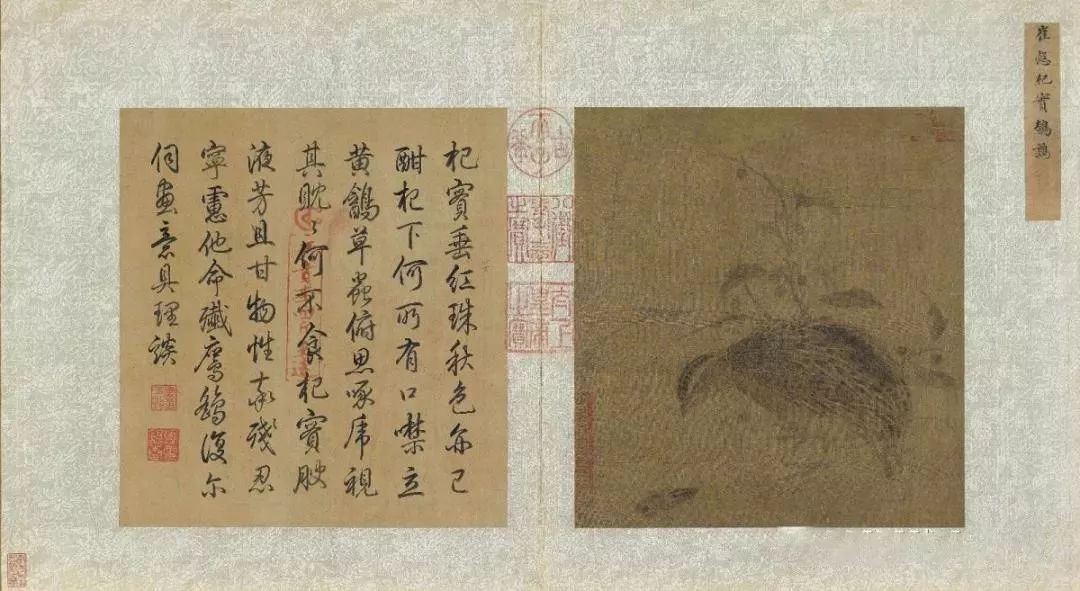 崔慤杞實鵪鶉
杞實垂紅珠秋色亦已
酣杞下何所有口噤立
黃鶴草蟲俯思啄虎視
其眈〻何不食杞實腴
液芳且甘物性奈殘忍
寧憲他命殲鷹鷂復尓
伺畫意具理談